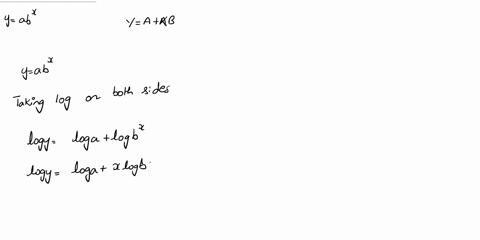 y = ab^x Y = A + XB
y = ab^x
Taking log on both sides
logy = loga + logb^x
logy = loga + x logb